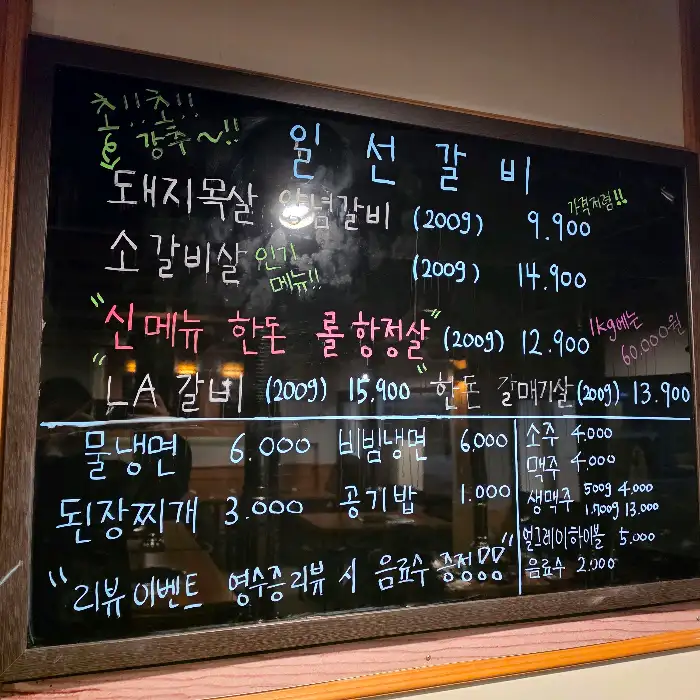 초!!초!!
강추~!!
일선갈비
돼지목살 양념갈비 (200g) 9.900 가격저렴!!
소갈비살 인기메뉴!! (200g) 14.900
"신메뉴 한돈 롤항정살" (200g) 12.900 1kg에는 60.000원
"LA갈비 (200g) 15.900 "한돈 갈매기살 (200g) 13.900
물냉면 6.000 비빔냉면 6.000
된장찌개 3.000 공기밥 1.000
소주 4.000
맥주 4.000
생맥주 500g 4.000
1.700g 13.000
얼그레이하이볼 5.000
음료수 2.000
"리뷰이벤트 영수증리뷰 시 음료수 증정!!"